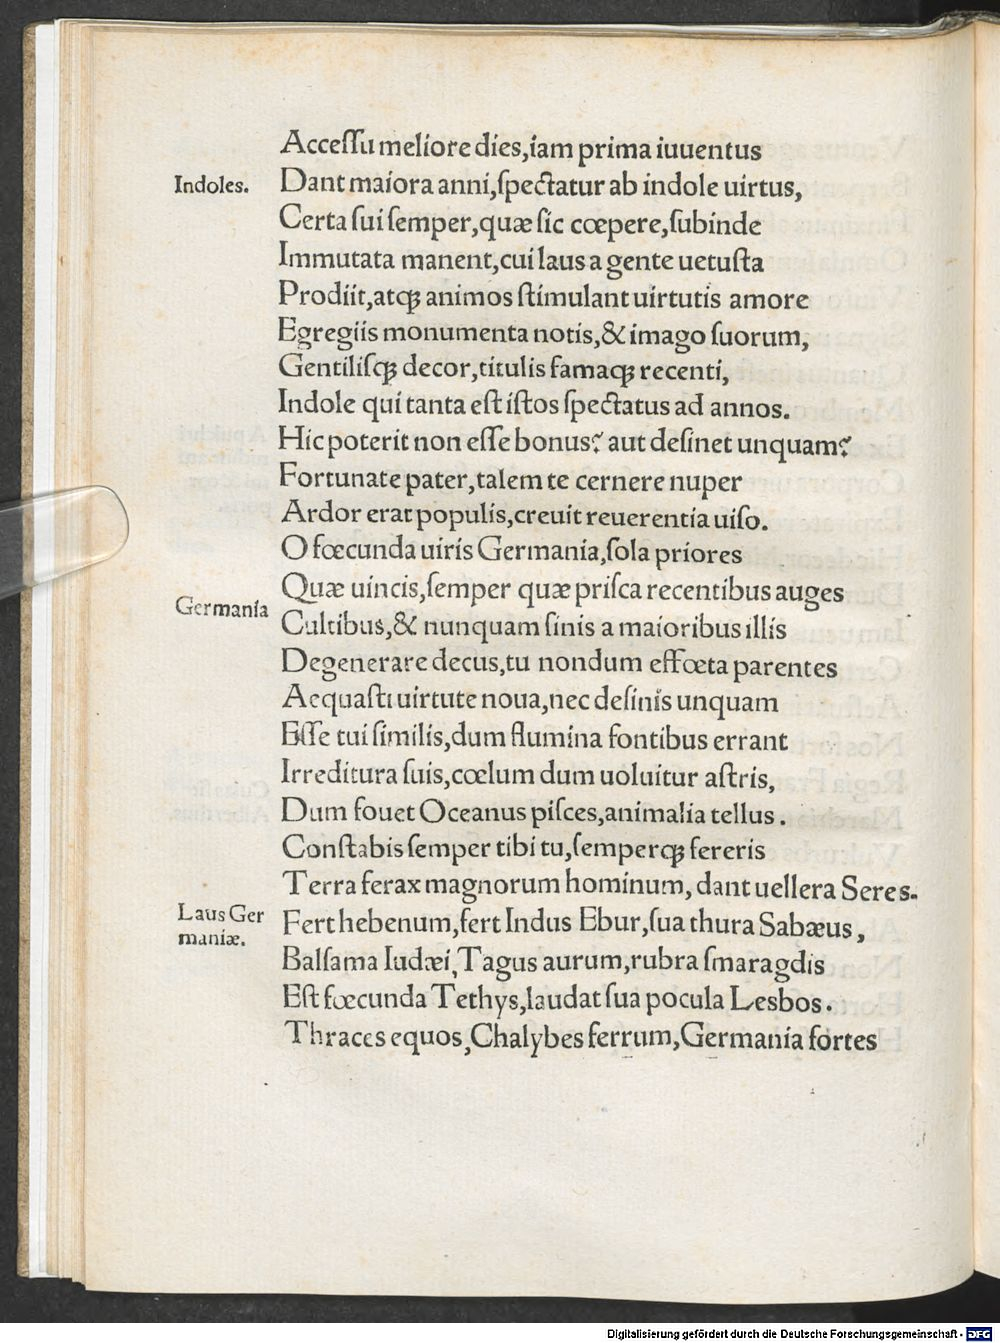 Accessu meliore dies,iam prima iuuentus
Indoles.
Dant maiora anni,spectatur ab indole uirtus,
Certa sui semper,quæ sic cœpere,subinde
Immutata manent,cui laus a gente uetusta
Prodiit,atqꝫ animos stimulant uirtutis amore
Egregiis monumenta notis,& imago suorum,
Gentilisqꝫ decor,titulis famaqꝫ recenti,
Indole qui tanta est istos spectatus ad annos.
Hic poterit non esse bonus? aut desinet unquam?
Fortunate pater,talem te cernere nuper
Ardor erat populis,creuit reuerentia uiso.
O fœcunda uiris Germania,sola priores
Quæ uincis,semper quæ prisca recentibus auges
Germania
Cultibus,& nunquam sinis a maioribus illis
Degenerare decus,tu nondum effœta parentes
Aequasti uirtute noua,nec desinis unquam
Esse tui similis,dum flumina fontibus errant
Irreditura suis,cœlum dum uoluitur astris,
Dum fouet Oceanus pisces,animalia tellus.
Constabis semper tibi tu,semperqꝫ fereris
Terra ferax magnorum hominum, dant uellera Seres.
Laus Ger
maniæ.
Fert hebenum,fert Indus Ebur,sua thura Sabæus,
Balsama Iudæi,Tagus aurum,rubra smaragdis
Est fœcunda Tethys,laudat sua pocula Lesbos.
Thraces equos,Chalybes ferrum,Germania fortes
Digitalisierung gefördert durch die Deutsche Forschungsgemeinschaft - DFG